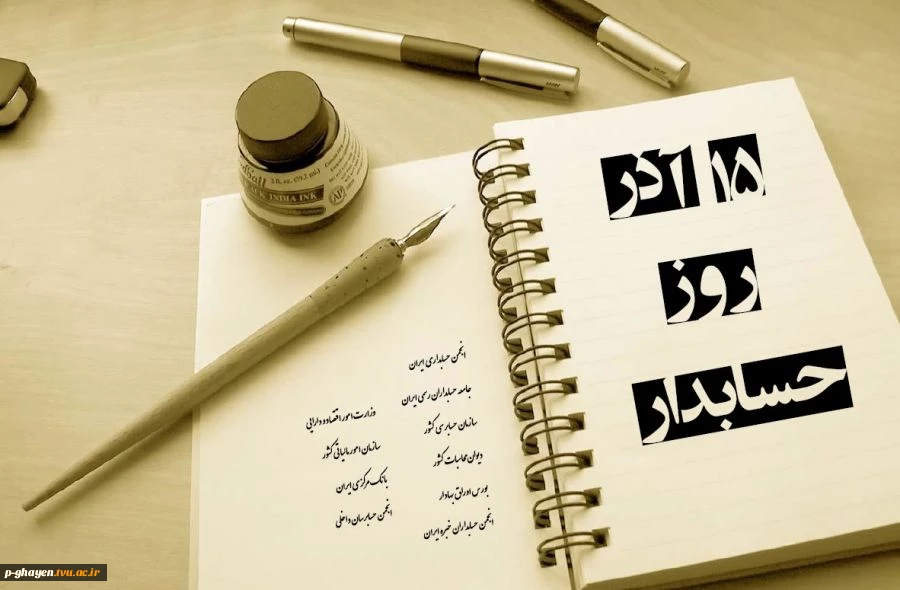 ۱۵ آذر
روز
حسابدار
انجمن حسابداری ایران
جامعه حسابداران رسمی ایران
سازمان حسابرسی کشور
دیوان محاسبات کشور
بورس اوراق بهادار
انجمن حسابداران خبره ایران
وزارت امور اقتصاد و دارایی
سازمان امور مالیاتی کشور
بانک مرکزی ایران
انجمن حسابرسان داخلی
2 fl. oz. (59.2 mL)
INDIA INK
AP
p-ghayen.tvu.ac.ir